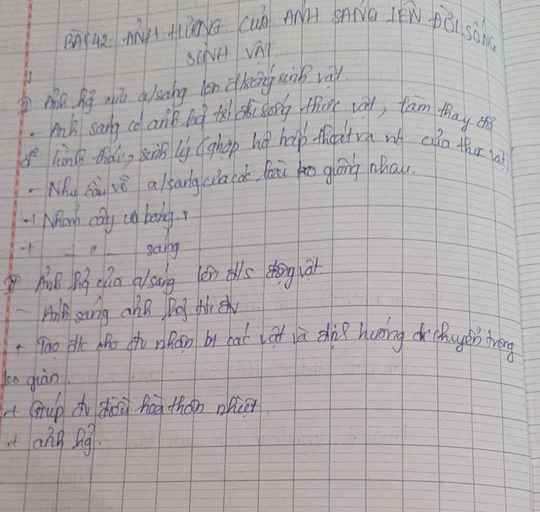 BÀI 42. ẢNH HƯỞNG CỦA ÁNH SÁNG LÊN ĐỜI SỐNG
SINH VẬT
Ảnh hg của a/sáng lên đ/sống sinh vật
- Ánh sáng có ảnh hg tới đời sống thực vật, làm thay đổi
hình thái, sinh lý (qhợp hô hấp thoát ra nc của thực vật
- Nhu cầu về a/sáng của các loài ko giống nhau.
+ Nhóm cây ưa bóng
+ _ " _ sáng
Ảnh hg của a/sáng lên đ/s động vật
- Ánh sáng ảnh hg tới đv
+ Tạo đk cho đv nhận bt các vật và định hướng di chuyển trong
ko gian.
+ Giúp đv điều hoà thân nhiệt
+ ảnh hg.